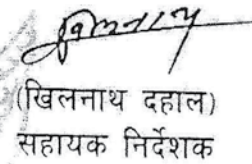 खिलनाथ
(खिलनाथ दहाल)
सहायक निर्देशक